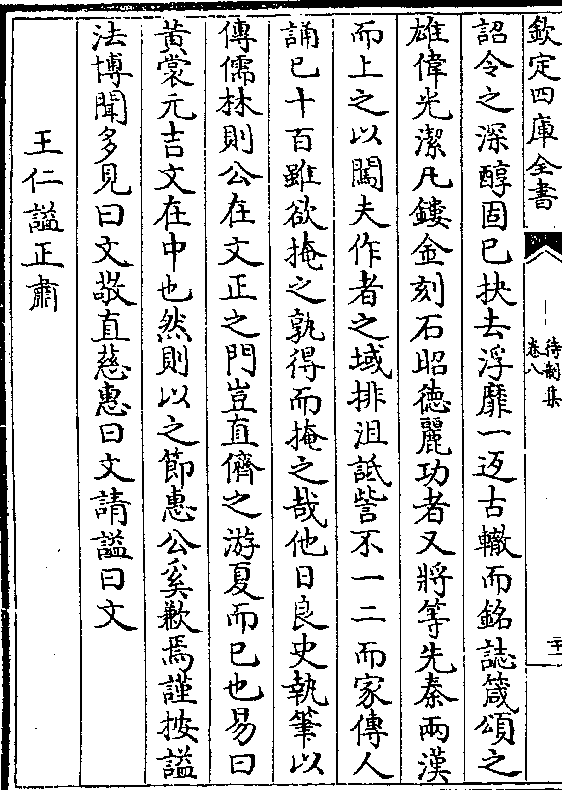 欽定四庫全書
待制集
卷八
二十
詔令之深醇固已抉去浮靡一迈古轍而銘誌箴頌之
雄偉光潔凡鏤金刻石昭德麗功者又將等先秦兩漢
而上之以闖夫作者之域排沮詆訾不一二而家傳人
誦已十百雖欲掩之孰得而掩之哉他日良史執筆以
傳儒林則公在文正之門豈直儕之游夏而已也易曰
黃裳元吉文在中也然則以之節惠公奚歉焉謹按諡
法博聞多見曰文敬直慈惠曰文請諡曰文
王仁諡正肅